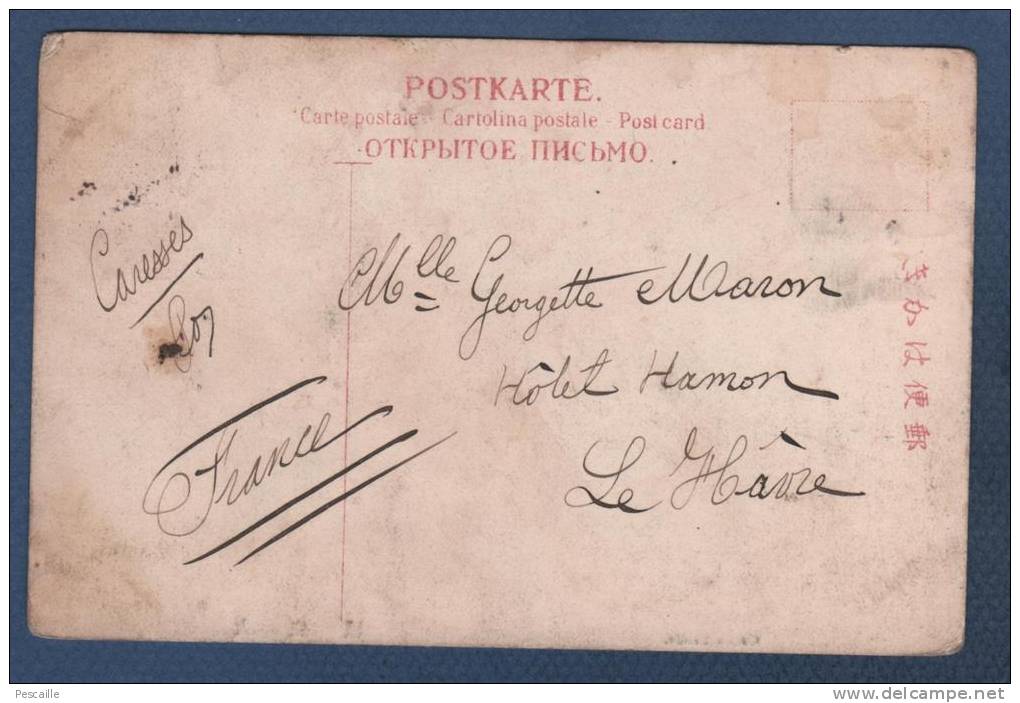 POSTKARTE.
Carte postale - Cartolina postale - Post card
ОТКРЫТОЕ ПИСЬМО.
Caresses
Mlle Georgette Maron
Hôlet Hamon
Le Hâvre
France
郵便はかき
Pescaille
delcampe.net